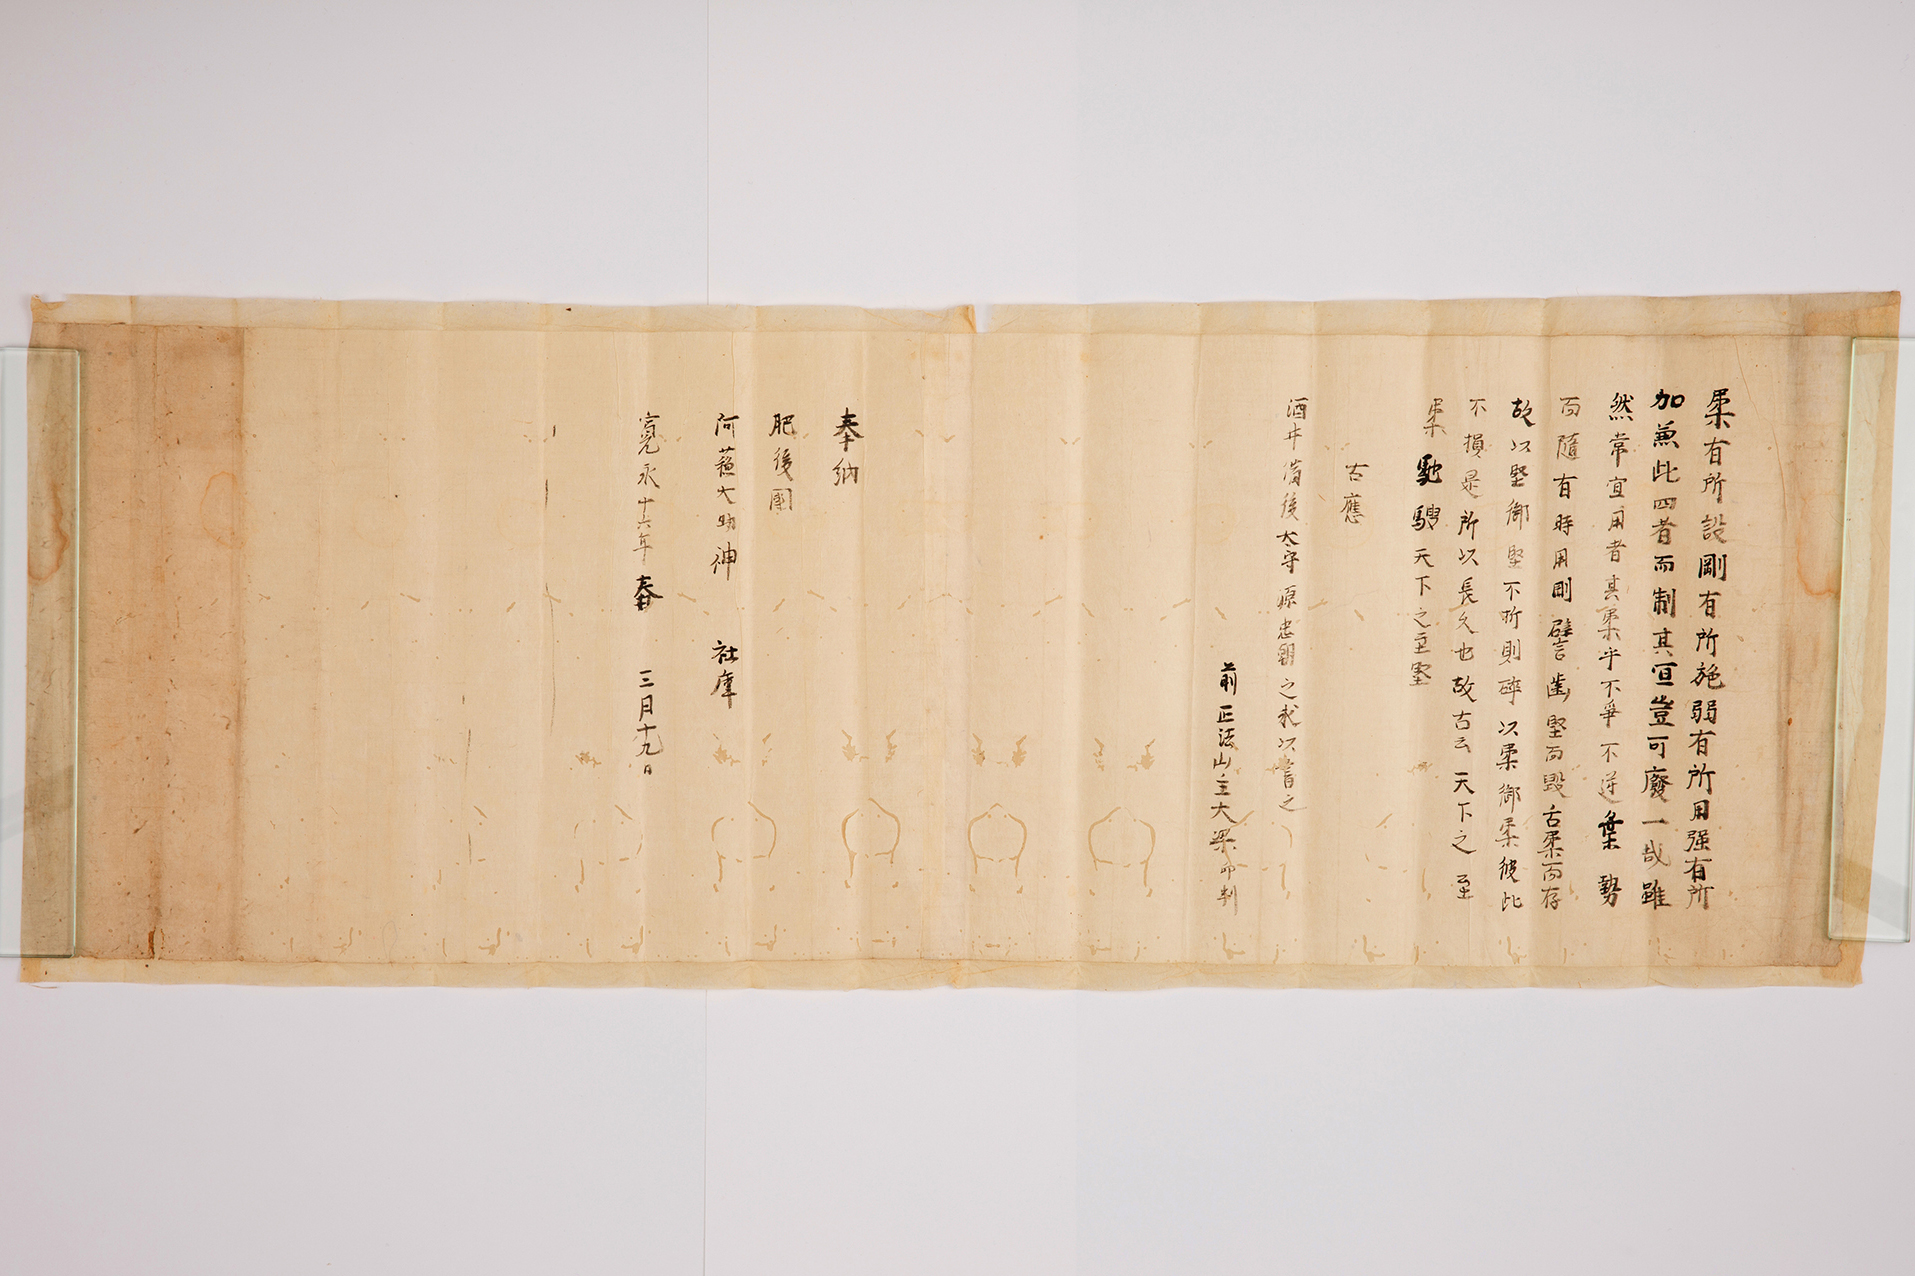 柔有所設剛有所施弱有所用强有所
加兼此四者而制其宜豈可廢一哉雖
然常宜用者其柔乎不爭不逆棄勢
而隨有時用剛譬歯堅而毀舌柔而存
故以堅御堅不折則砕以柔御柔彼此
不損是所以長久也故古云天下之至
柔馳騁天下之至堅
右應
酒井備後太守源忠朝之求以書之
前正法山主大梁印判
奉納
肥後國
阿蘇大明神 社庫
寛永十六年 春 三月十九日